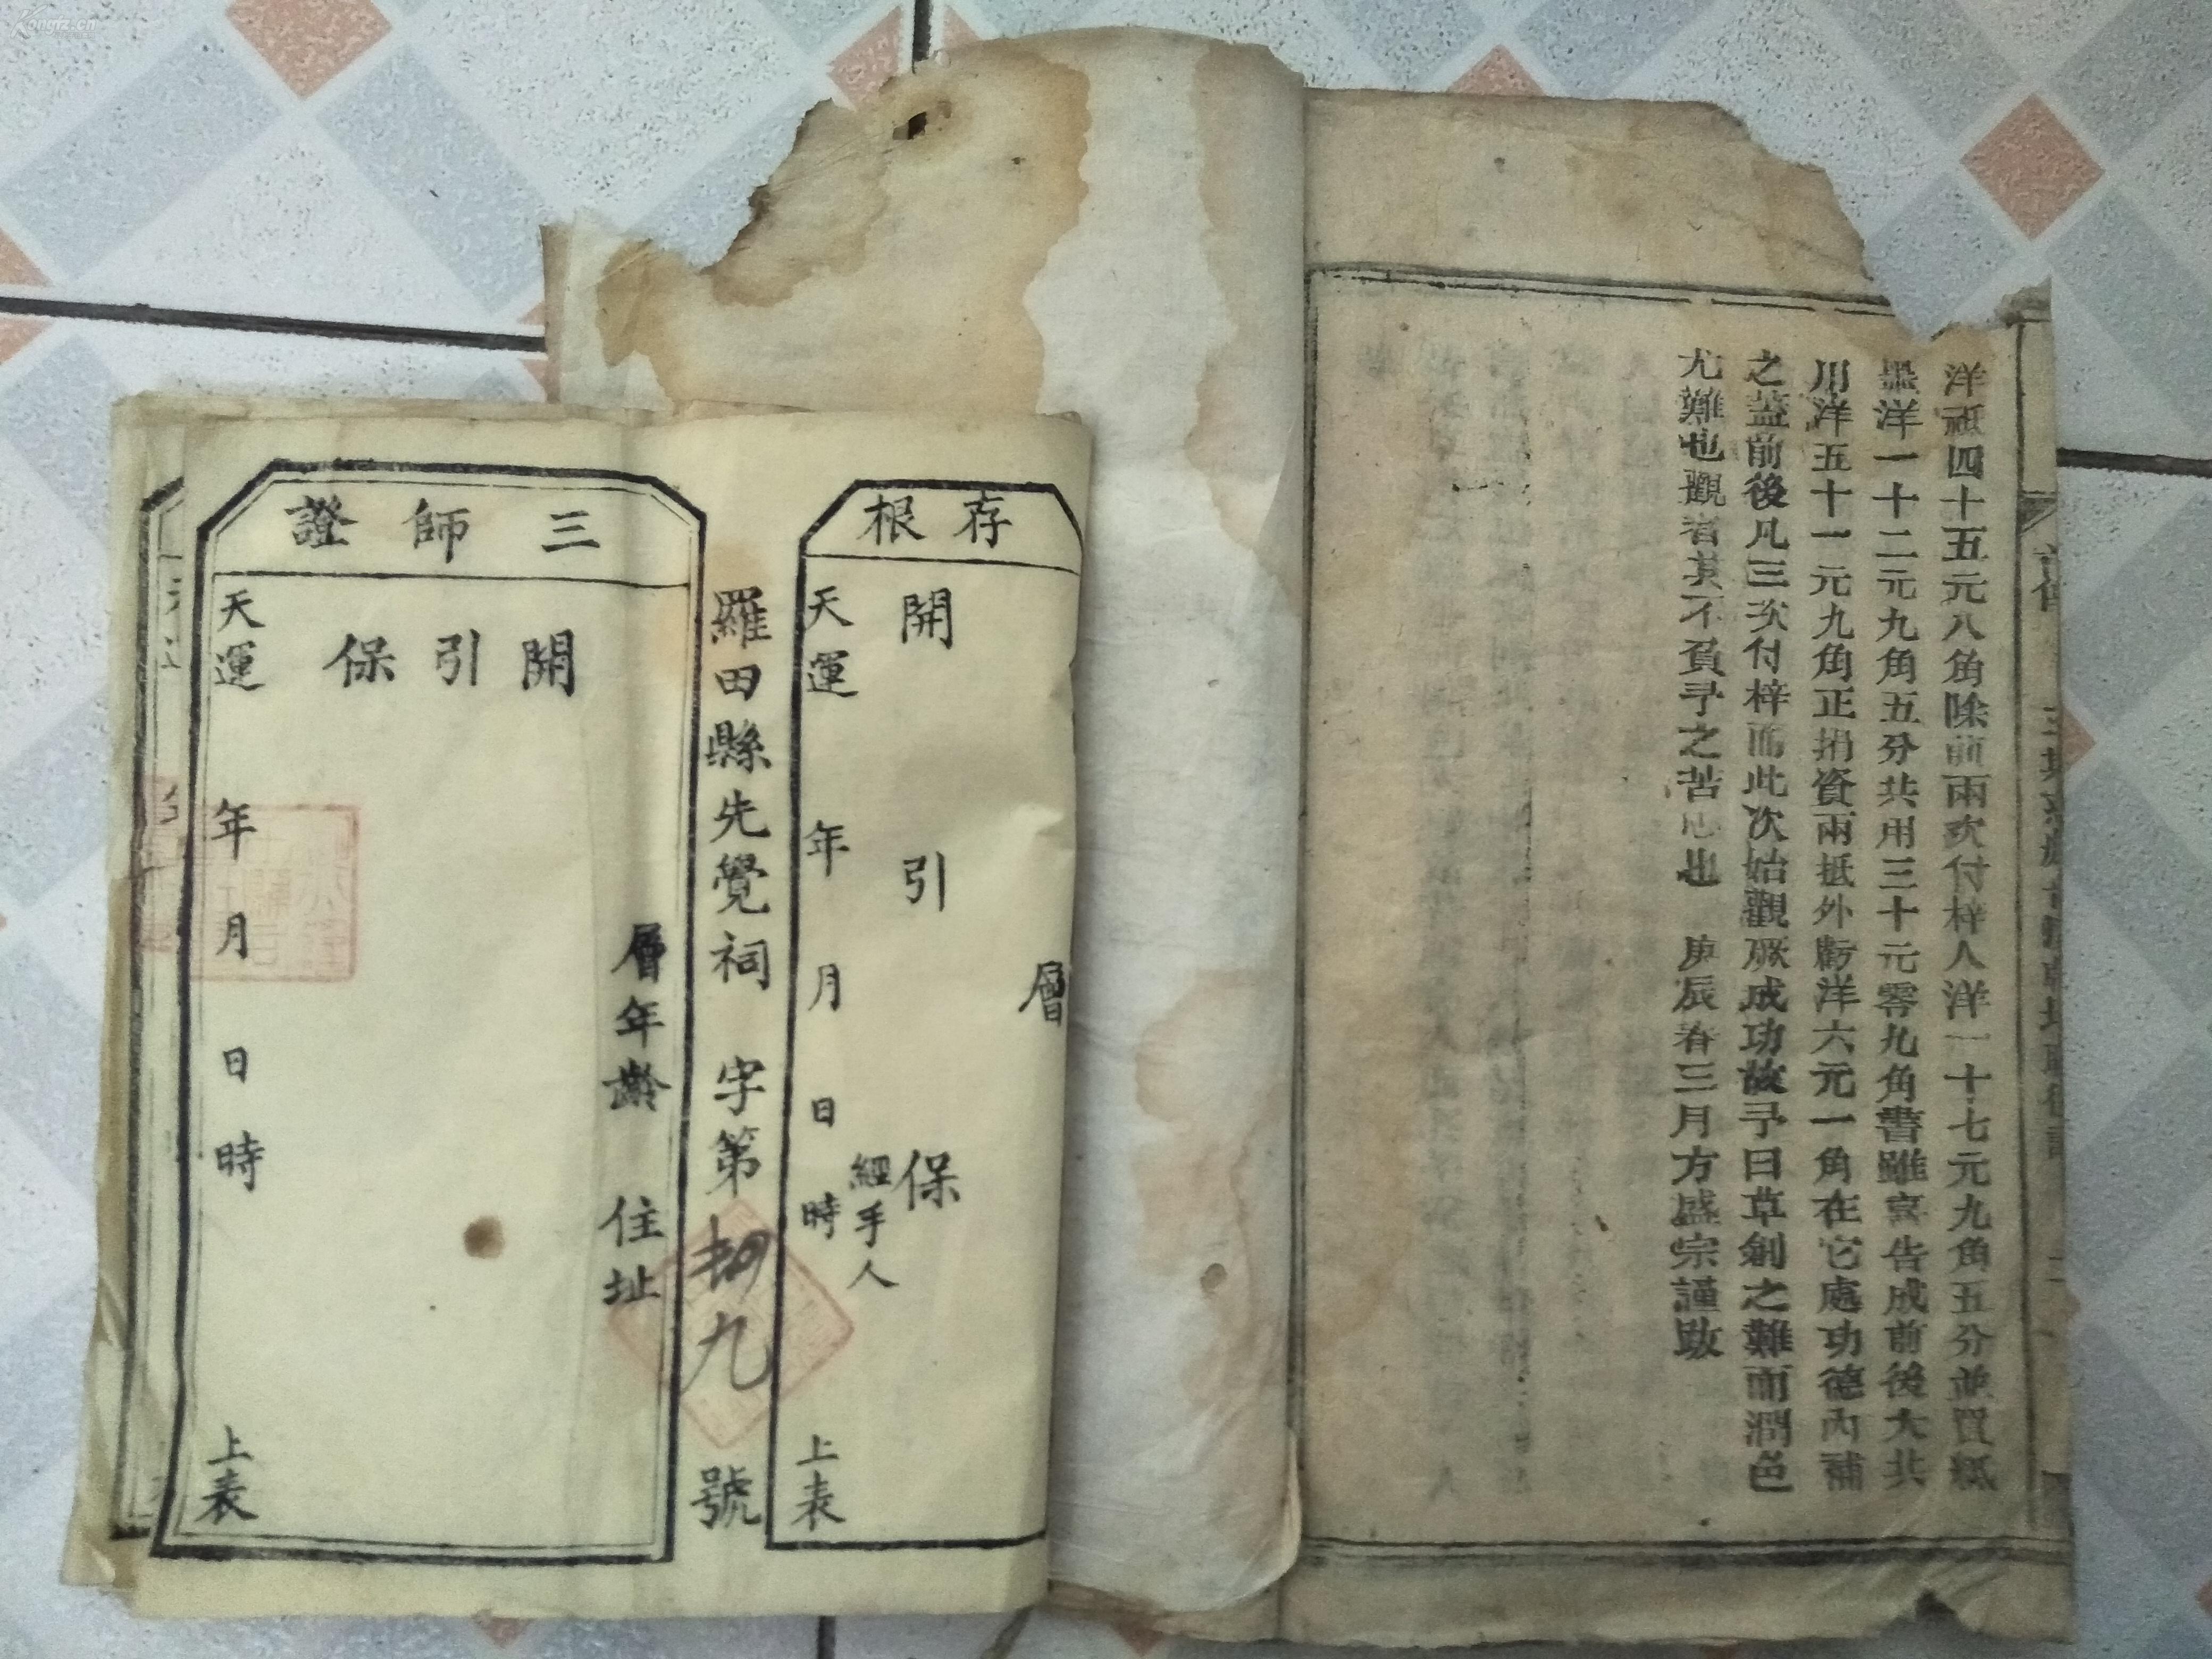 洋祗四十五元八角除前兩次付梓人洋一十七元九角五分並買紙
墨洋一十二元九角五分共用三十元零九角書雖喜告成前後大共
用洋五十一元九角正捐資兩抵外虧洋六元一角在它處功德內補
之蓋前後凡三次付梓而此次始觀厥成功故予曰草創之難而潤色
尤難也觀者其不負予之苦心也 庚辰春三月方盛宗謹跋
存根
層
開 引 保
經手人
天運 年 月 日 時 上表
羅田縣先覺祠 字第 捌九 號
三師證
層年齡 住址
開引保
天運 年 月 日 時 上表
Kongfz.cn